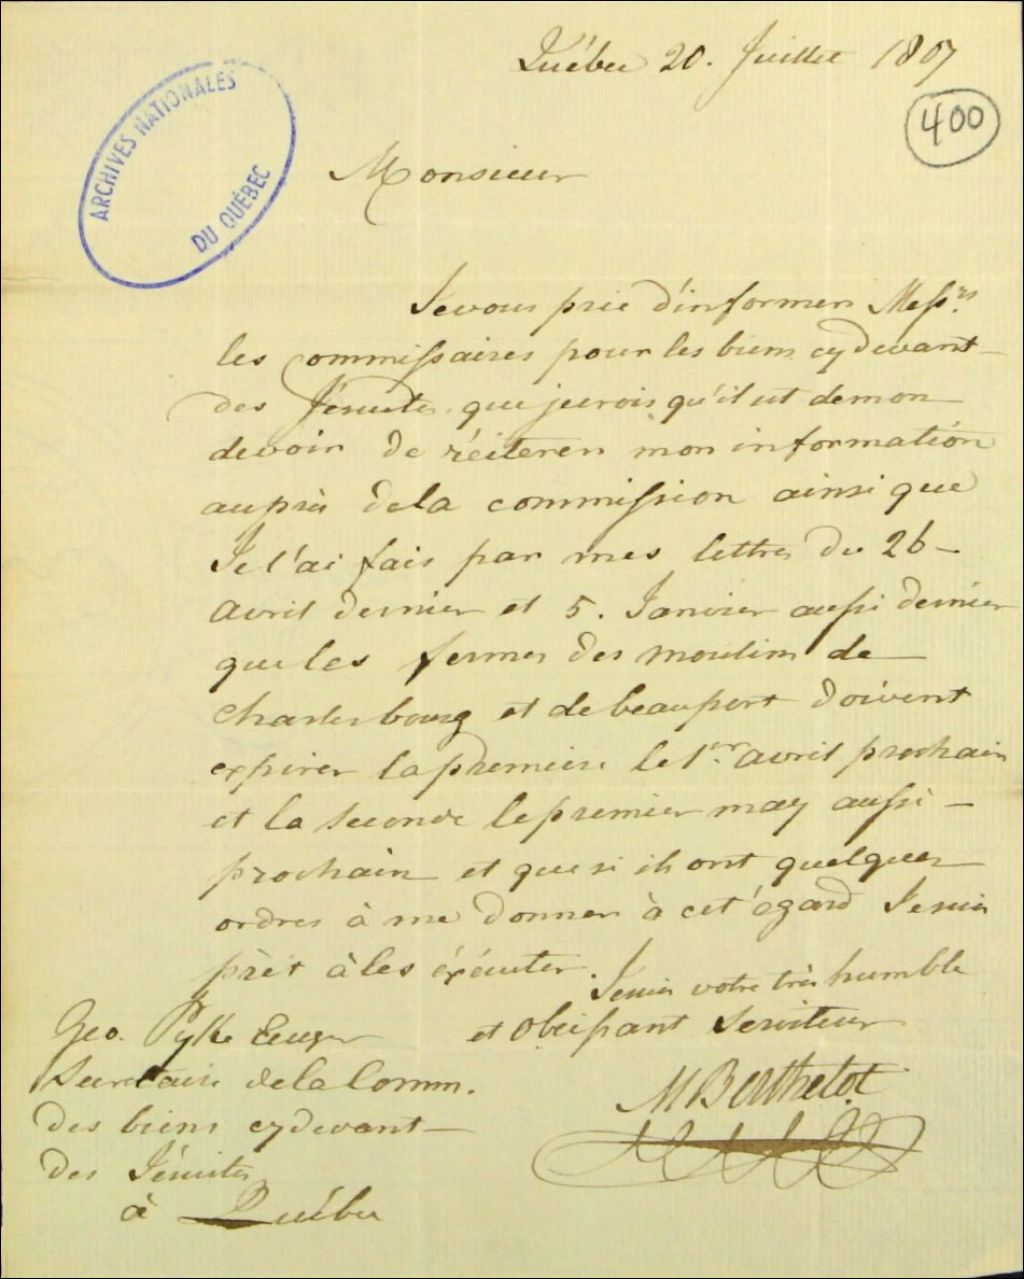 Québec 20. Juillet 1807
400
ARCHIVES NATIONALES
DU QUÉBEC
Monsieur
Je vous prie d'informer Mess.rs
les Commissaires pour les biens cydevant
des Jésuites que je crois qu'il est de mon
devoir de réiterer mon information
auprès de la commission ainsi que
Je l'ai fais par mes lettres du 26
avril dernier et 5. Janvier aussi dernier
que les fermes des moulins de
Charlesbourg et de beauport doivent
expirer la premiere le 1.er avril prochain
et la seconde le premier may aussi
prochain et que si ils ont quelques
ordres à me donner à cet égard Je suis
prèt à les éxécuter.
Je suis votre très humble
et obeissant Serviteur
M Berthelot
Geo. Pyke
Secretaire de la Comm.
des biens cydevant
des Jésuites
à Québec